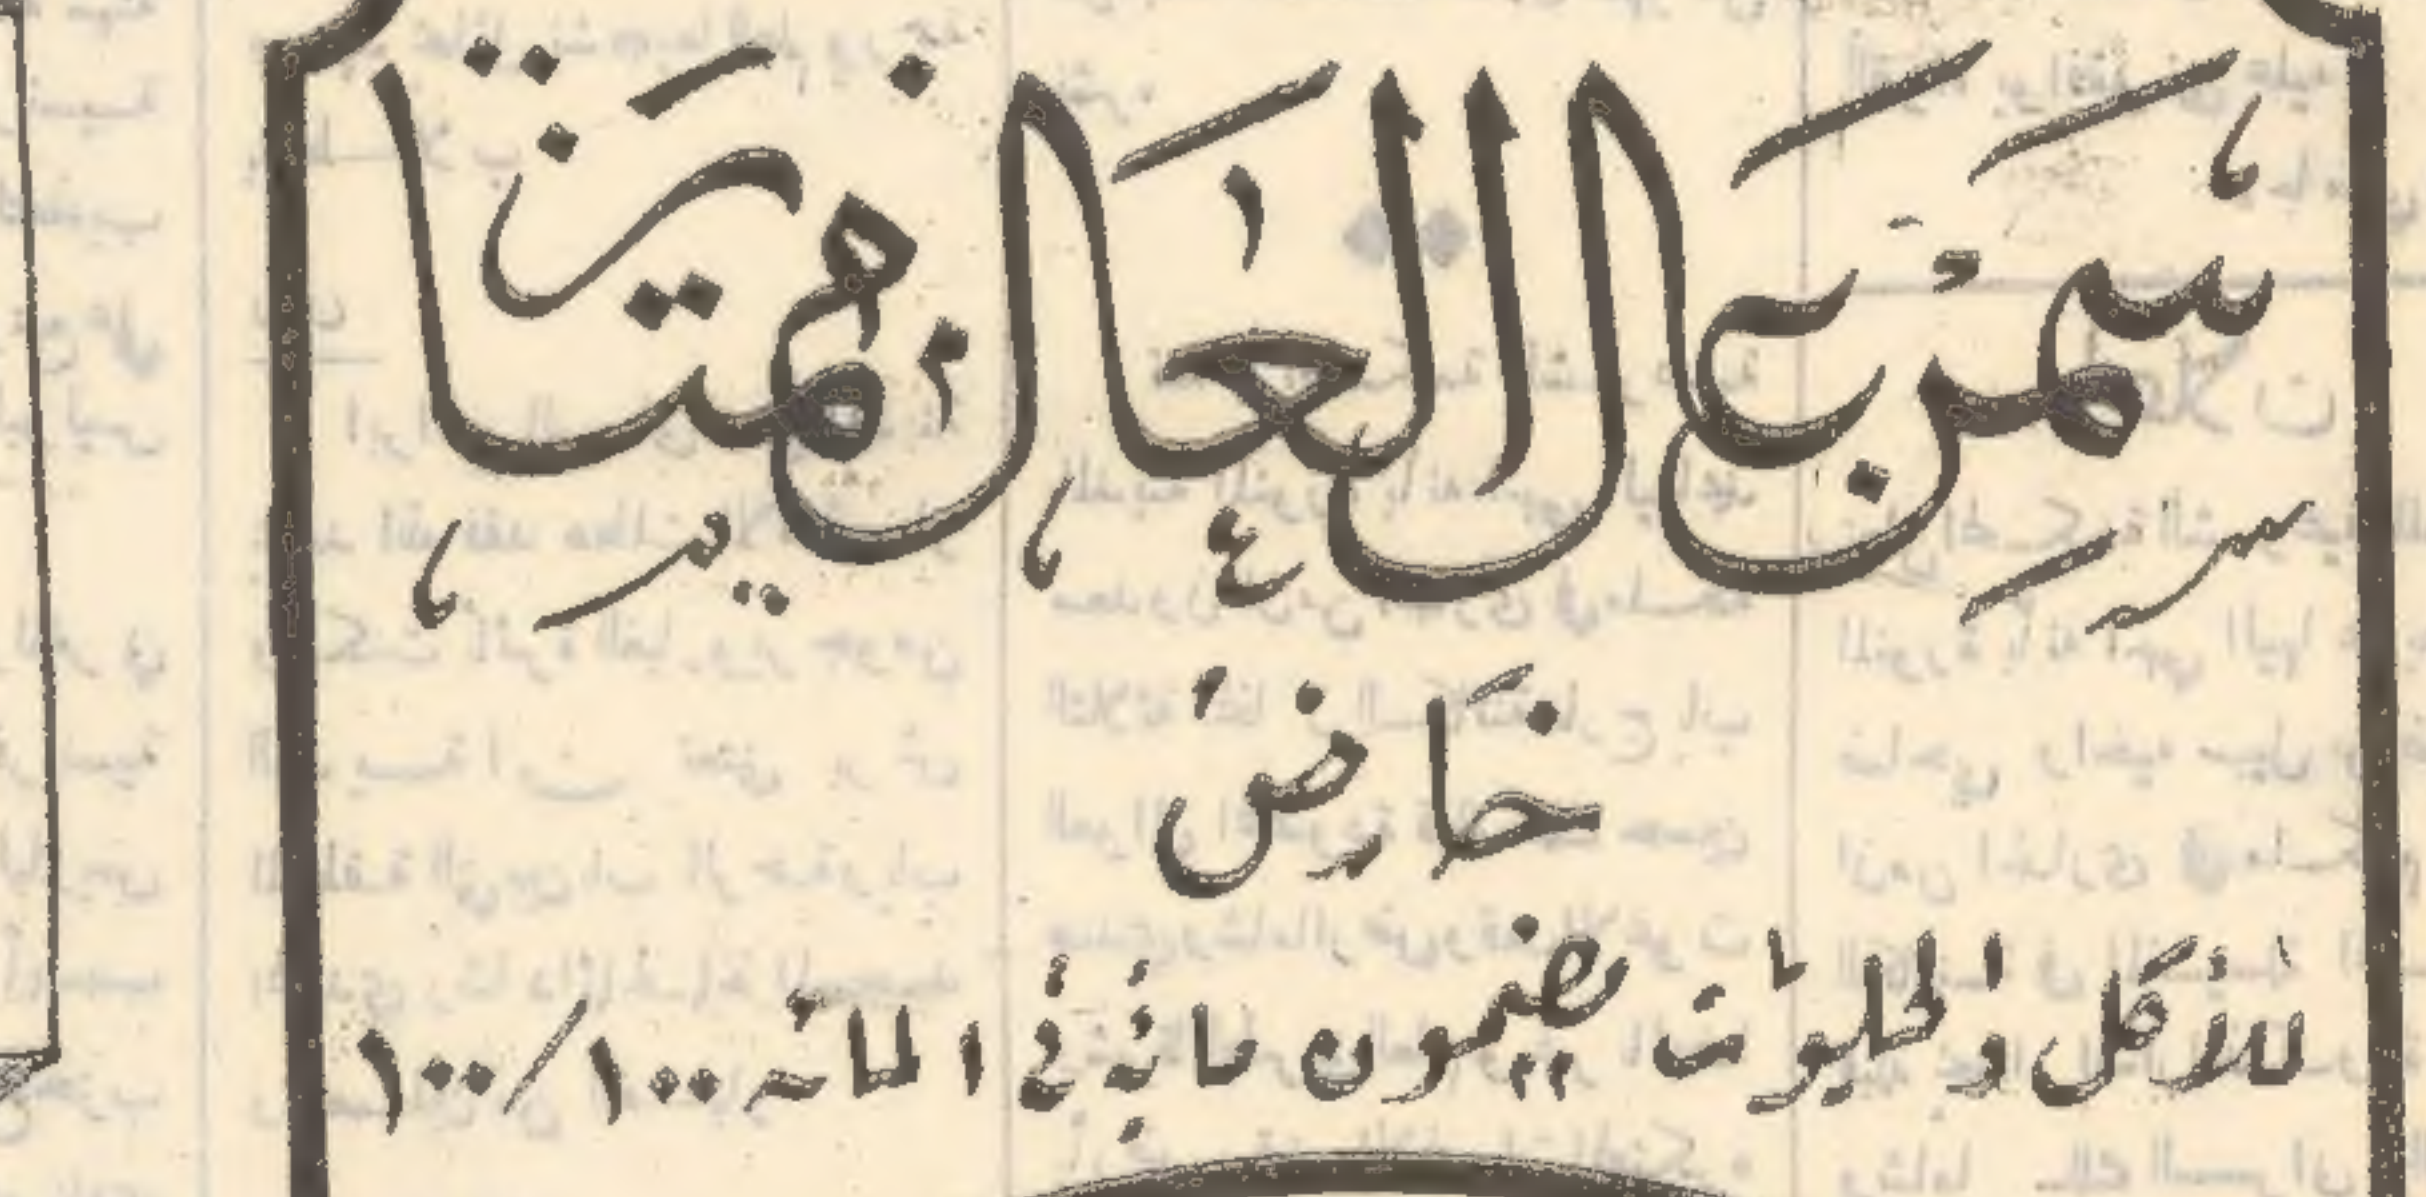 سمن عال العال ممتاز
خارض
للأكل والحلويات مضمون مائة في المائه ١٠٠/١٠٠